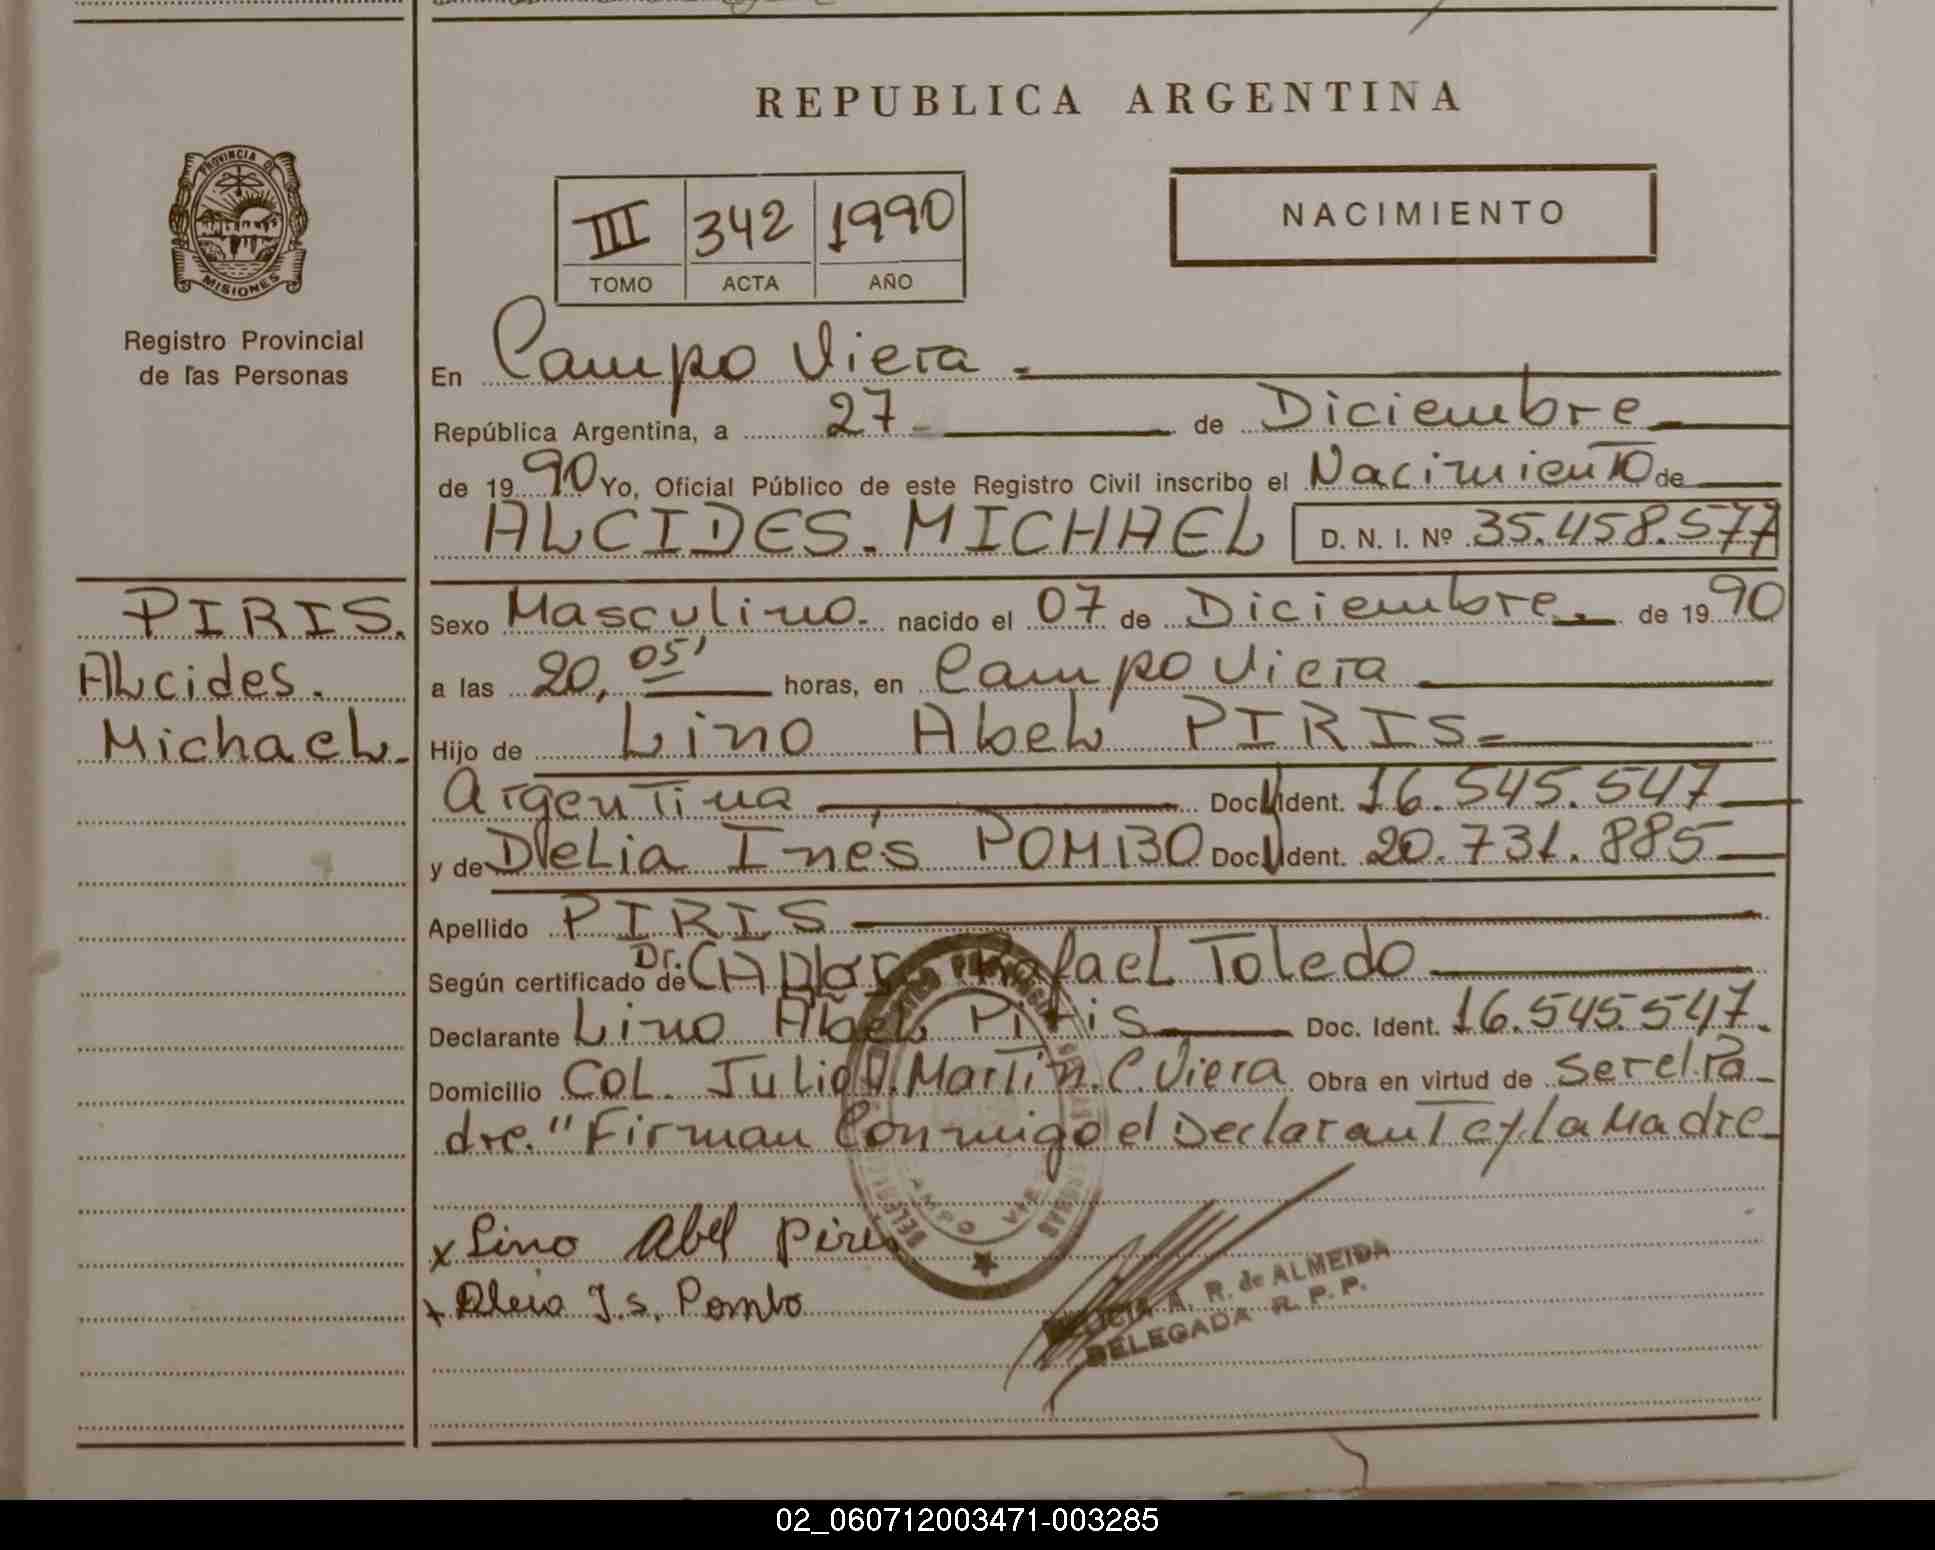 REPUBLICA ARGENTINA
PROVINCIA DE
MISIONES
Registro Provincial
de las Personas
III 342 1990
TOMO ACTA AÑO
NACIMIENTO
En Campo Viera
República Argentina, a 27 de Diciembre
de 1990 Yo, Oficial Público de este Registro Civil inscribo el Nacimiento de
ALCIDES. MICHAEL D. N. I. Nº 35.458.577
PIRIS.
Alcides.
Michael.
Sexo Masculino. nacido el 07 de Diciembre. de 1990
a las 20,05' horas, en Campo Viera
Hijo de Lino Abel PIRIS
Argentina Doc. Ident. 16.545.547
y de Delia Inés POMBO Doc. Ident. 20.731.885
Apellido PIRIS
Según certificado de Dr. Rafael Toledo
Declarante Lino Abel Piris Doc. Ident. 16.545.547.
Domicilio Col. Julio U. Martin. C. Viera Obra en virtud de ser el Pa
dre. "Firman Conmigo el Declarante y la Madre
x Lino Abel Piris
x I.s. Pombo
A. R. de ALMEIDA
DELEGADA R. P. P.
02_060712003471-003285